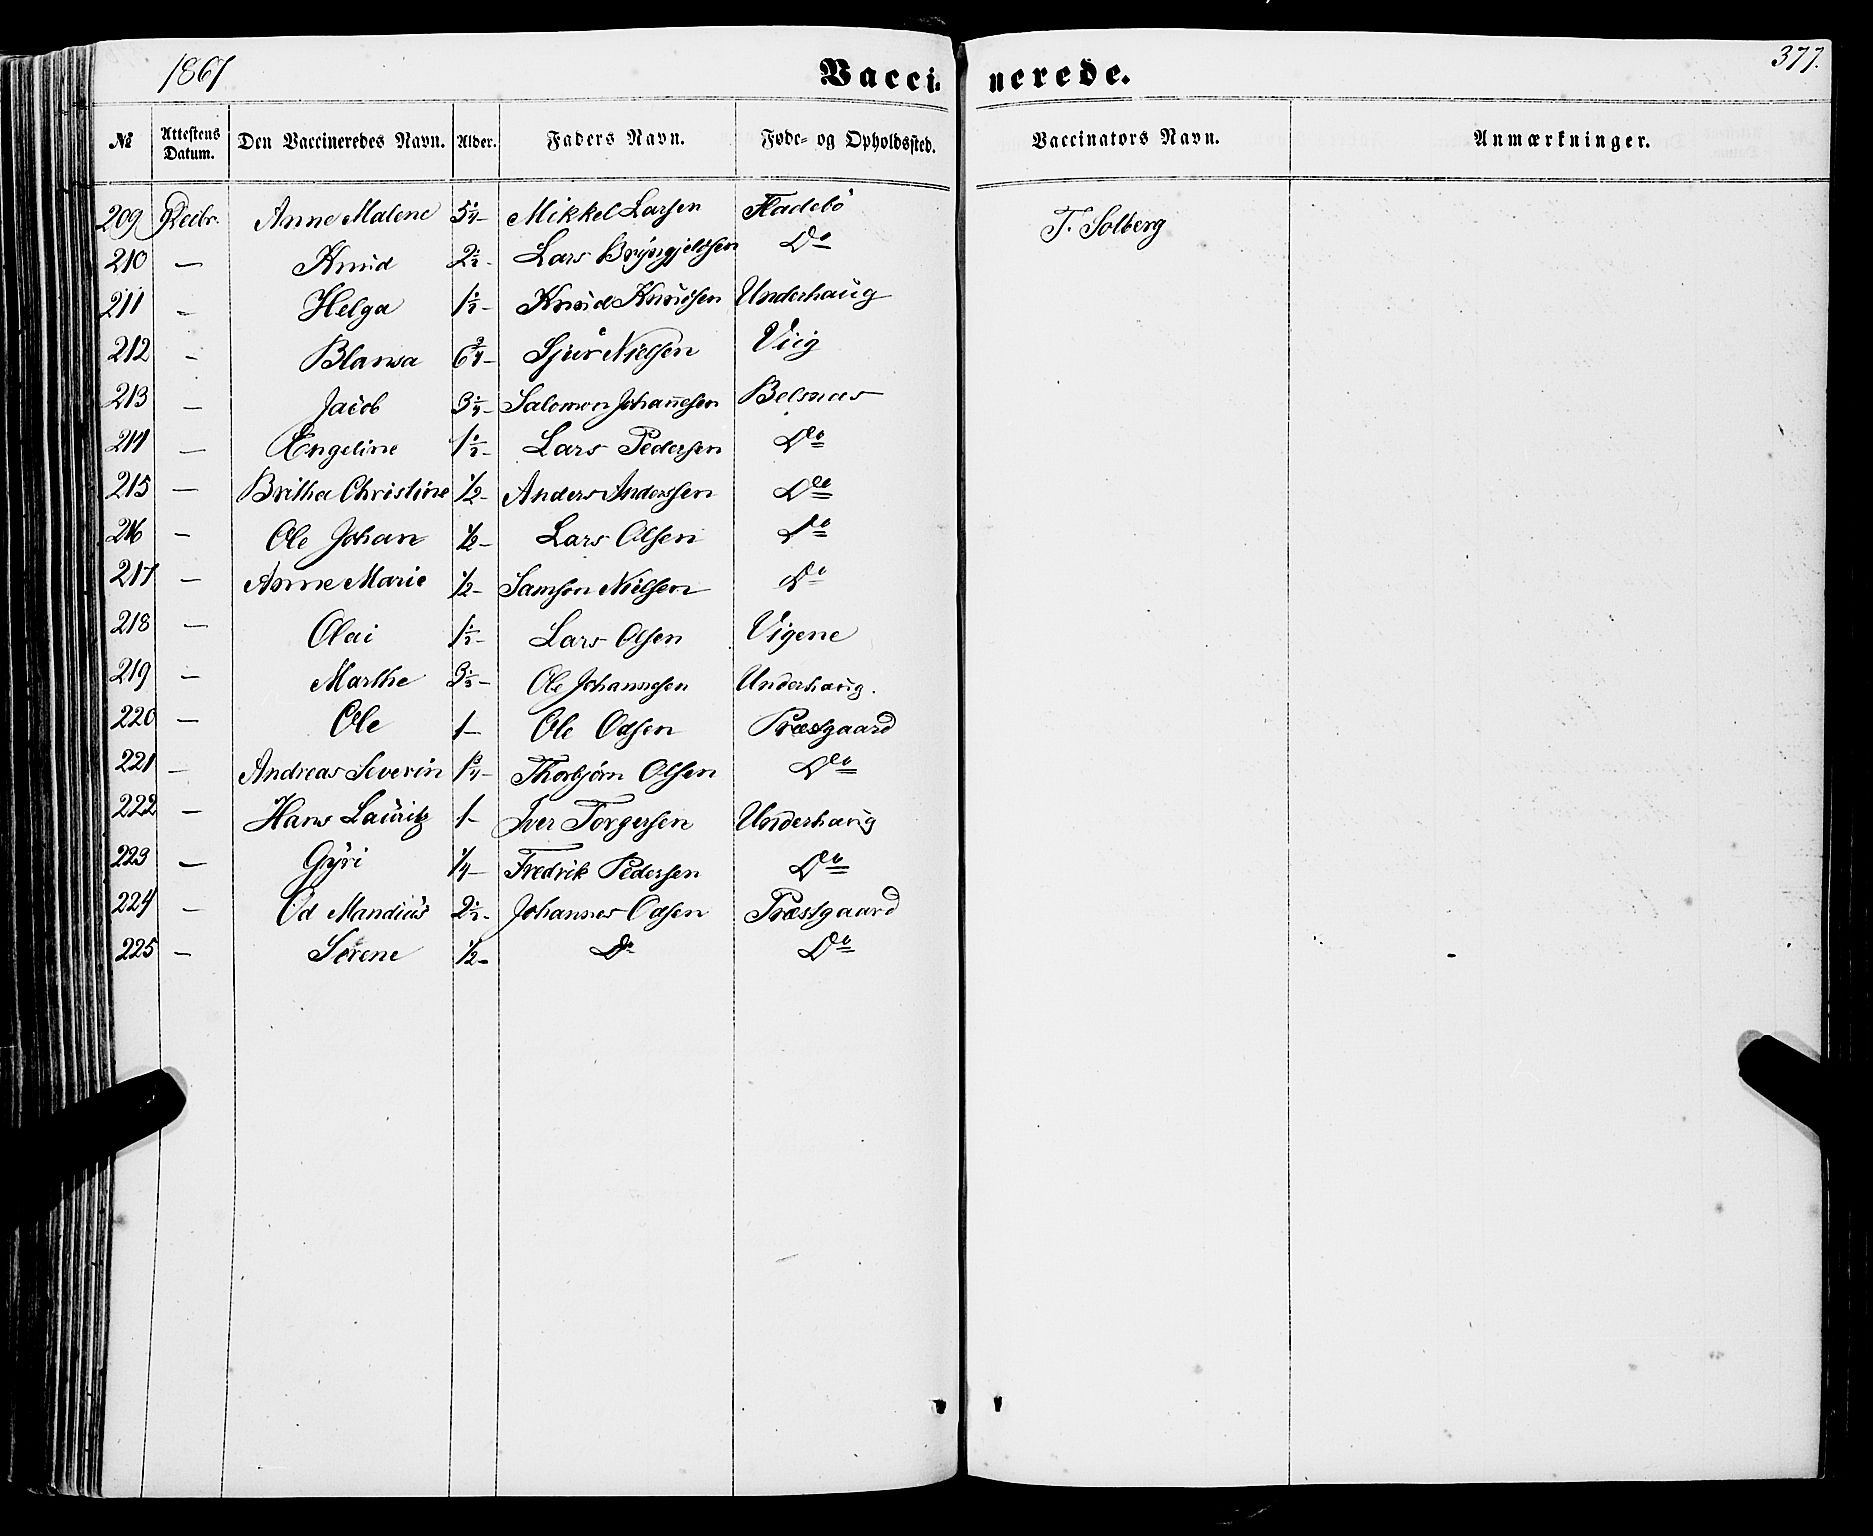 1867 Vaccinerede. 377.
No Attestens Datum. Den Vaccineredes Navn. Alder. Faders Navn. Føde- og Opholdssted. Vaccinators Navn. Anmærkninger.
209 Anne Malene 5 1/4 Mikkel Larsen Fladebö T. Solberg
210 — Knud 2 1/2 Lars Brÿngjelfsen Do
211 — Helga 1 1/2 Knud Knudsen Underhaug
212 — 6 3/4 Sjur Nielsen Viig
213 — Jacob 3 1/4 Salomon Johannesen Belsnæs
214 — Engeline 1 1/2 Lars Pedersen Do
215 — Britha Christine 1/2 Anders Anderssen Do
216 — Ole Johan 1/2 Lars Olsen Do
217 — Anne Marie 1/2 Samson Nielsen Do
218 — Olai 1 1/2 Lars Olsen Vigene
219 — Marthe 3 1/2 Ole Johannesen Underhaug.
220 — Ole 1 Ole Odsen Præstgaard
221 — Andreas Severin 1 3/4 Thorbjørn Olsen Do
222 — Hans Lauritz 1 Iver Torgersen Underhaug
223 — Gÿri 1/4 Fredrik Pedersen Do
224 — Od Mandius 2 1/2 Johannes Odsen Præstgaard
225 — Sørene 1/2 Do Do